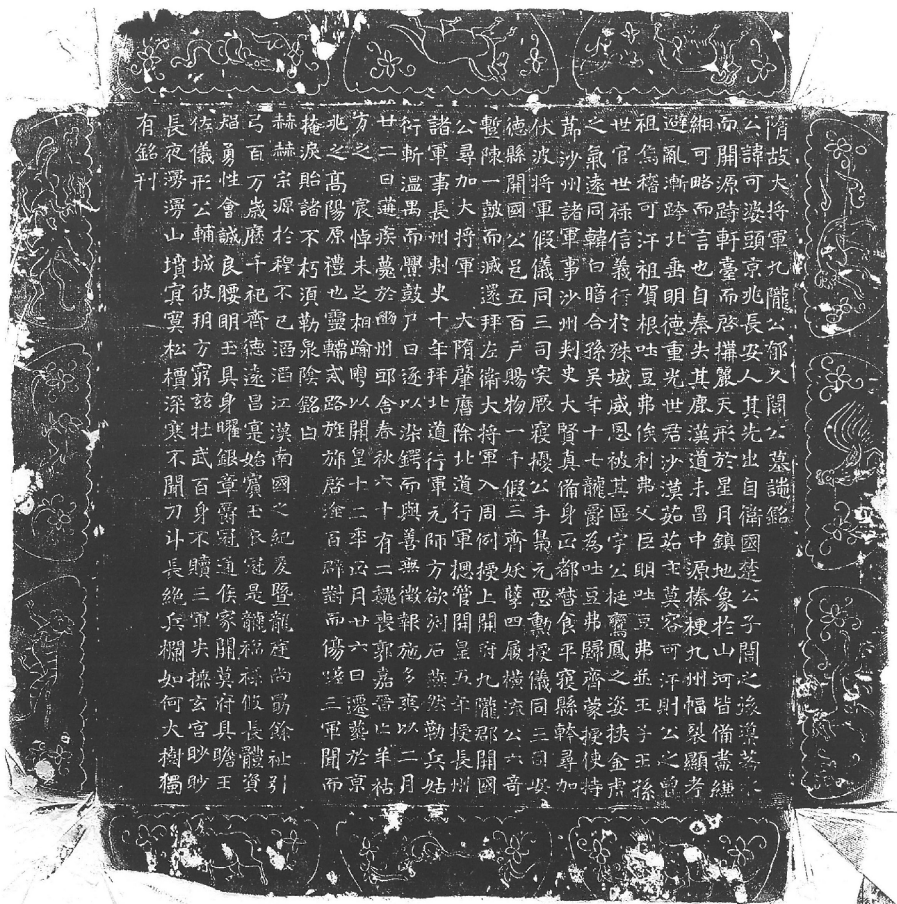 隋故大将軍九隴公郁久閭公墓誌銘
公諱可婆頭京兆長安人其先出自衛國楚公子閭之後導若水
而開源跱軒臺而啓構麗天形於星月鎮地象於山河皆備盡縑
緗可略而言也自秦失其鹿漢道未昌中源榛梗九州幅裂顯考
避亂漸跨北垂明德重光世君沙漠茹茹主莫容可汗則公之曾
祖焉稽可汗祖賀根吐豆弗俟利弗父臣明吐豆弗並王子王孫
世官世禄信義行於殊域威恩被其區宇公挺鸞鳳之姿挾金肅
之氣遠同韓白暗合孫吳年十七襲爵為吐豆弗歸齊蒙授使持
節沙州諸軍事沙州刾史大賢真備身正都督食平寇縣幹尋加
伏波将軍假儀同三司突厥寇擾公手梟元悪勳授儀同三司安
德縣開國公邑五百户賜物一千假三齊妖孽四履横流公六奇
蹔陳一鼓而滅還拜左衛大将軍入周例授上開府九隴郡開國
公尋加大将軍 大隋肇曆除北道行軍揔管開皇五年授長州
諸軍事長州刾史十年拜北道行軍元帥方欲刋石燕然勒兵姑
衍斬温禺而舋鼓尸日逐以染鍔而與善無徵報施多爽以二月
廿二日遘疾薨於豳州邸舍春秋六十有二魏喪郭嘉晉亡羊祜
方之 宸悼未足相踰粤以開皇十二年正月廿六日遷葬於京
兆之高陽原禮也靈轜戒路旌旆啓塗百辟對而傷嗟三軍聞而
掩淚貽諸不朽湏勒泉陰銘曰
赫赫宗源於穆不已滔滔江漢南國之紀爰暨龍廷尚勖餘祉引
弓百万歲歷千祀齊德遠昌寔始賓王衣冠是襲福禄攸長體資
智勇性會誠良腰明玉具身曜銀章爵冠通侯家開莫府具瞻王
佐儀形公輔城彼朔方窮兹壮武百身不贖三軍失撫玄宫眇眇
長夜漫漫山墳寘寞松檟深寒不聞刀斗長絶兵欄如何大樹獨
有銘刊